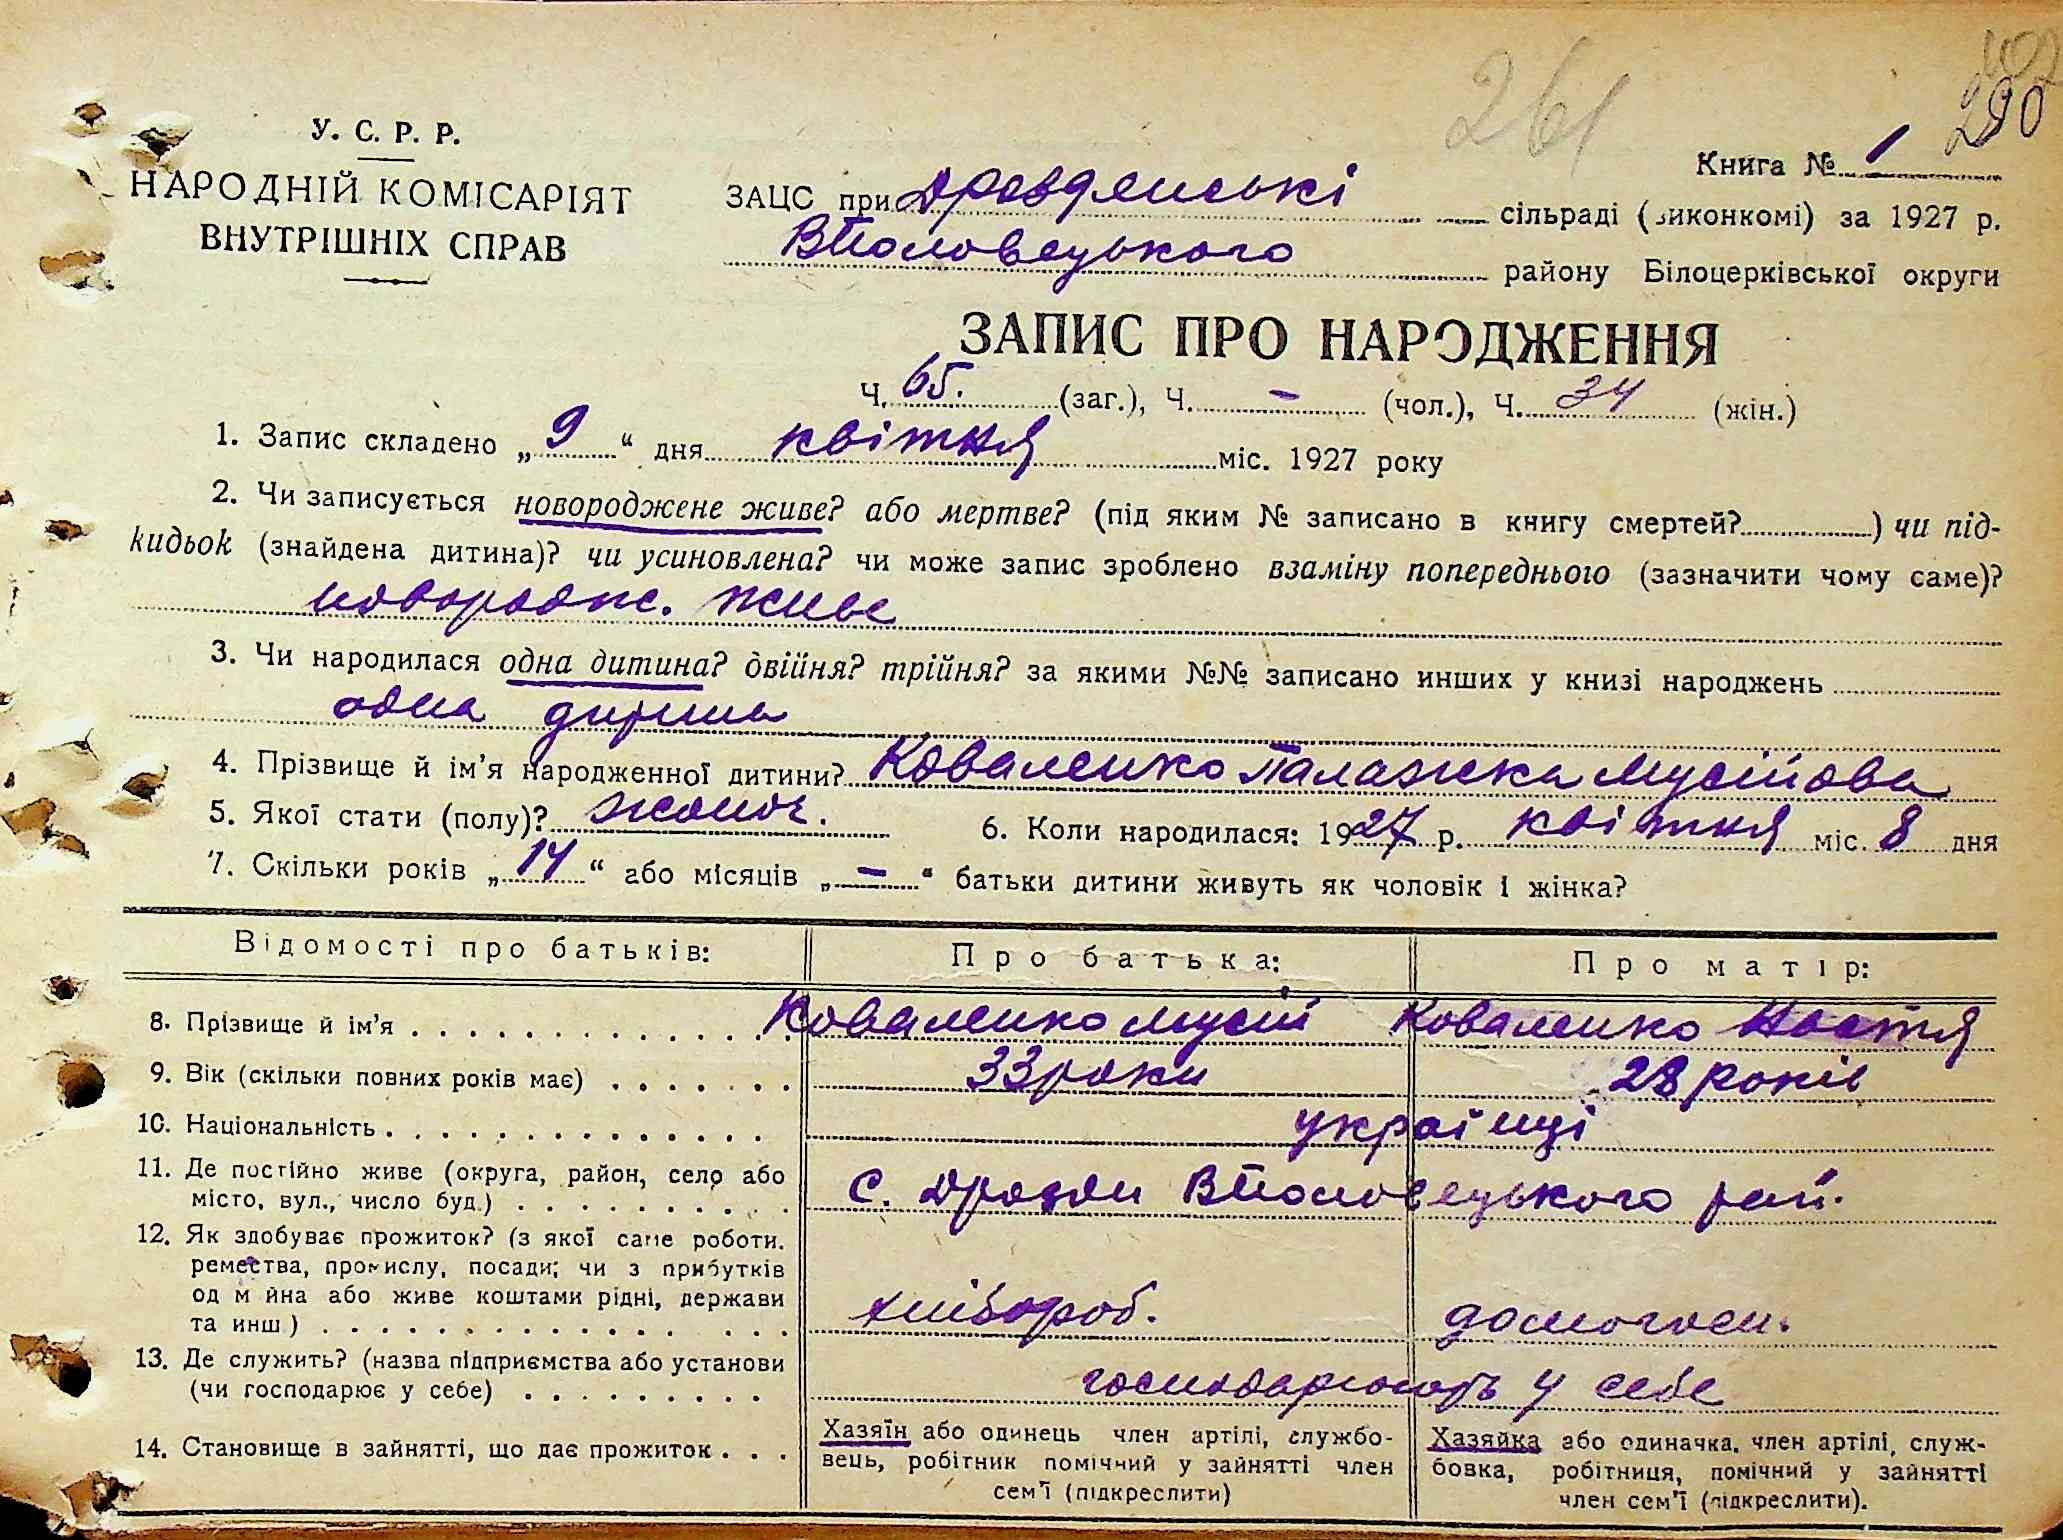 261
290
У. С. Р. Р.
НАРОДНІЙ КОМІСАРІЯТ
ВНУТРІШНІХ СПРАВ
Книга № 1
ЗАЦС при Дроздянські сільраді (виконкомі) за 1927 р.
ВПоловецького району Білоцерківської округи
ЗАПИС ПРО НАРОДЖЕННЯ
Ч. 65. (заг.), Ч. - (чол.), Ч. 34 (жін.)
1. Запис складено „ 9 “ дня квітня міс. 1927 року
2. Чи записується новороджене живе? або мертве? (під яким № записано в книгу смертей? ) чи під-
кидьок (знайдена дитина)? чи усиновлена? чи може запис зроблено взаміну попереднього (зазначити чому саме)?
новородж. живе
3. Чи народилася одна дитина? двійня? трійня? за якими №№ записано инших у книзі народжень
одна дитина
4. Прізвище й ім’я народженної дитини? Коваленко Палажка Мусійова
5. Якої стати (полу)? жіноч. 6. Коли народилася: 1927 р. квітня міс. 8 дня
7. Скільки років „ 14 “ або місяців „ - “ батьки дитини живуть як чоловік і жінка?
Відомості про батьків: Про батька: Про матір:
8. Прізвище й ім’я . . . . . . . . . . . . . Коваленко Мусій Коваленко Настя
9. Вік (скільки повних років має) . . . . . . . 33 роки 28 років
10. Національність . . . . . . . . . . . . . . українці
11. Де постійно живе (округа, район, село або
місто, вул., число буд.) . . . . . . . . . . с. Дрозди ВПоловецького рай.
12. Як здобуває прожиток? (з якої саме роботи,
ремества, промислу, посади; чи з прибутків
од м йна або живе коштами рідні, держави
та инш ) . . . . . . . . . . . . . . . . хлібороб. домогосп.
13. Де служить? (назва підприємства або установи
(чи господарює у себе) . . . . . . . . . . господарюють у себе
14. Становище в зайнятті, що дає прожиток . . .
Хазяїн або одинець член артілі, службо-
вець, робітник помічний у зайнятті член
сем’ї (підкреслити)
Хазяйка або одиначка, член артілі, служ-
бовка, робітниця, помічний у зайнятті
член сем’ї (підкреслити).